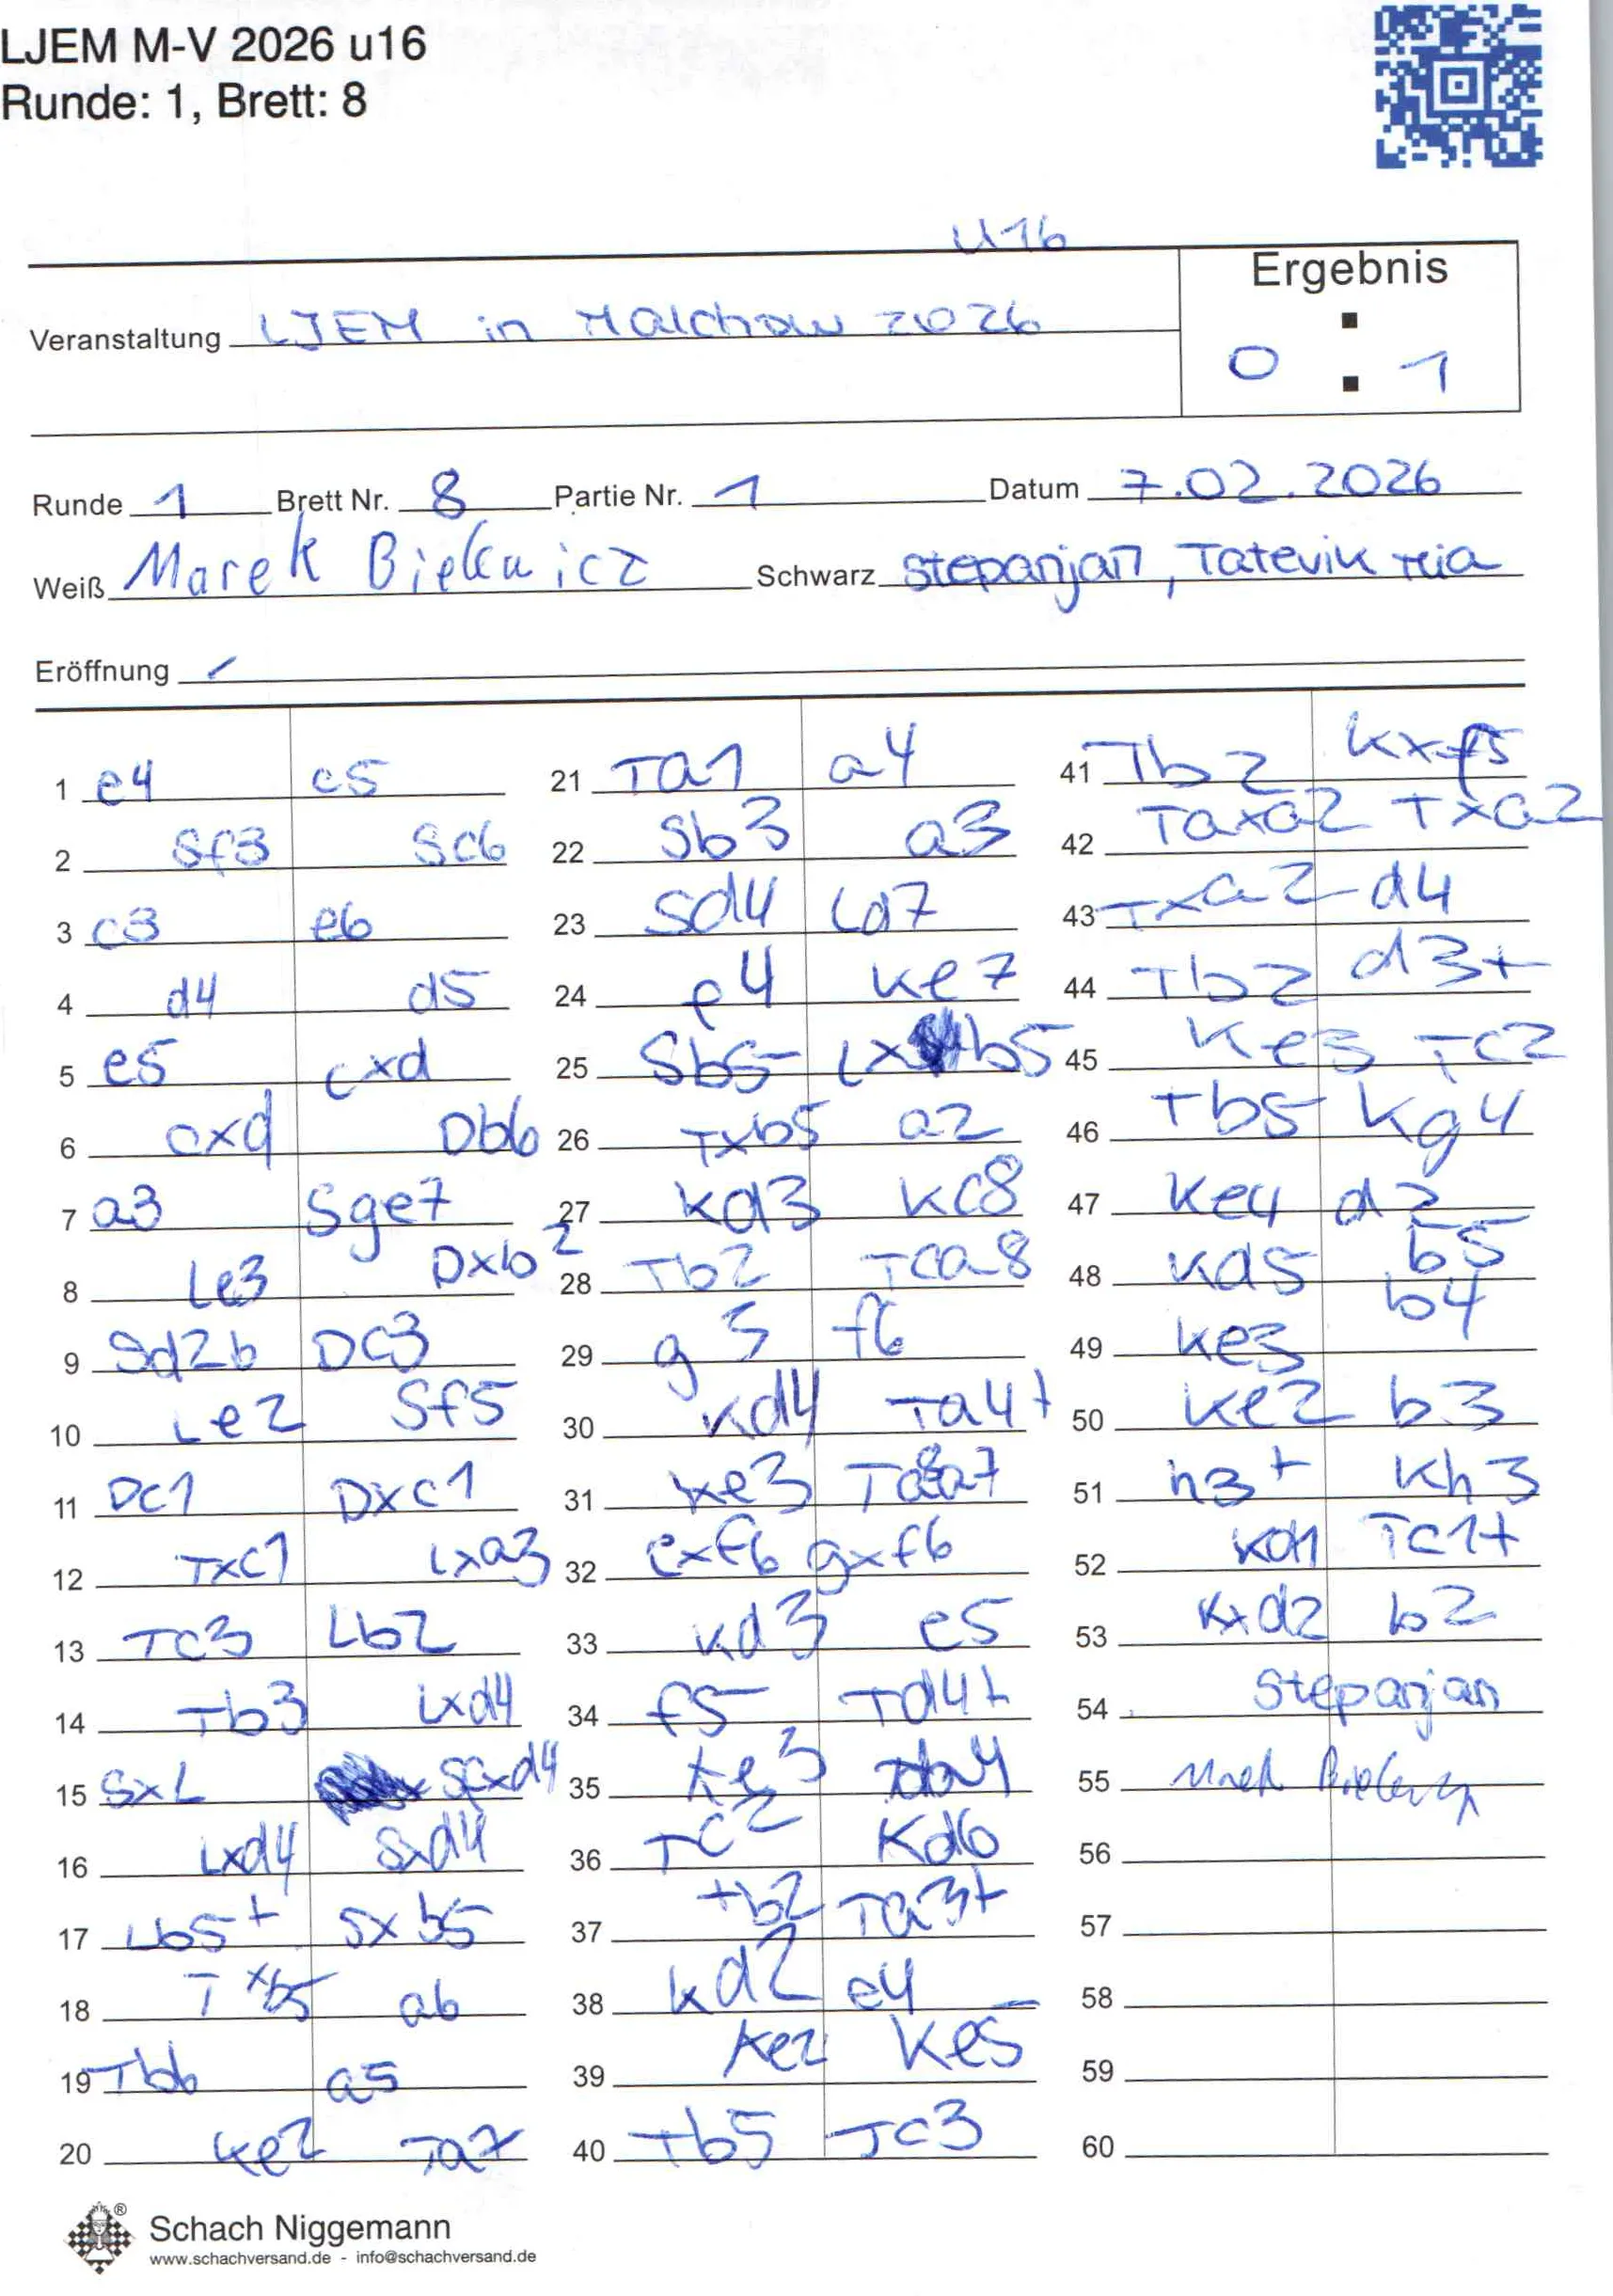 LJEM M-V 2026 u16
Runde: 1, Brett: 8
U16
Veranstaltung LJEM in Malchow 2026
Ergebnis
0 : 1
Runde 1 Brett Nr. 8 Partie Nr. 1 Datum 7.02.2026
Weiß Marek Bielewicz Schwarz Stepanjan, Tatevik Mia
Eröffnung /
1 e4 c5
2 Sf3 Sc6
3 c3 e6
4 d4 d5
5 e5 cxd
6 cxd Db6
7 a3 Sge7
8 Le3 Dxb2
9 Sd2b Dc3
10 Le2 Sf5
11 Dc1 Dxc1
12 Txc1 Lxa3
13 Tc3 Lb2
14 Tb3 Lxd4
15 SxL Scxd4
16 Lxd4 Sxd4
17 Lb5+ Sxb5
18 Txb5 a6
19 Tb6 a5
20 Ke2 Ta7
21 Ta1 a4
22 Sb3 a3
23 Sd4 Ld7
24 f4 Ke7
25 Sb5 Lxb5
26 Txb5 a2
27 Kd3 Kc8
28 Tb2 Tca8
29 g3 f6
30 Kd4 Ta4+
31 Ke3 T8a7
32 exf6 gxf6
33 Kd3 e5
34 f5 Td4+
35 Ke3 Tda4
36 Tc2 Kd6
37 Tb2 Ta3+
38 Kd2 e4
39 Ke2 Ke5
40 Tb5 Tc3
41 Tb2 Kxf5
42 Taxa2 Txa2
43 Txa2 d4
44 Tb2 d3+
45 Ke3 Tc2
46 Tb5 Kg4
47 Ke4 d2
48 Kd5 b5
49 Ke3 b4
50 Ke2 b3
51 h3+ Kh3
52 Kd1 Tc1+
53 Kxd2 b2
54 Stepanjan
55
56
57
58
59
60
Schach Niggemann
www.schachversand.de - info@schachversand.de